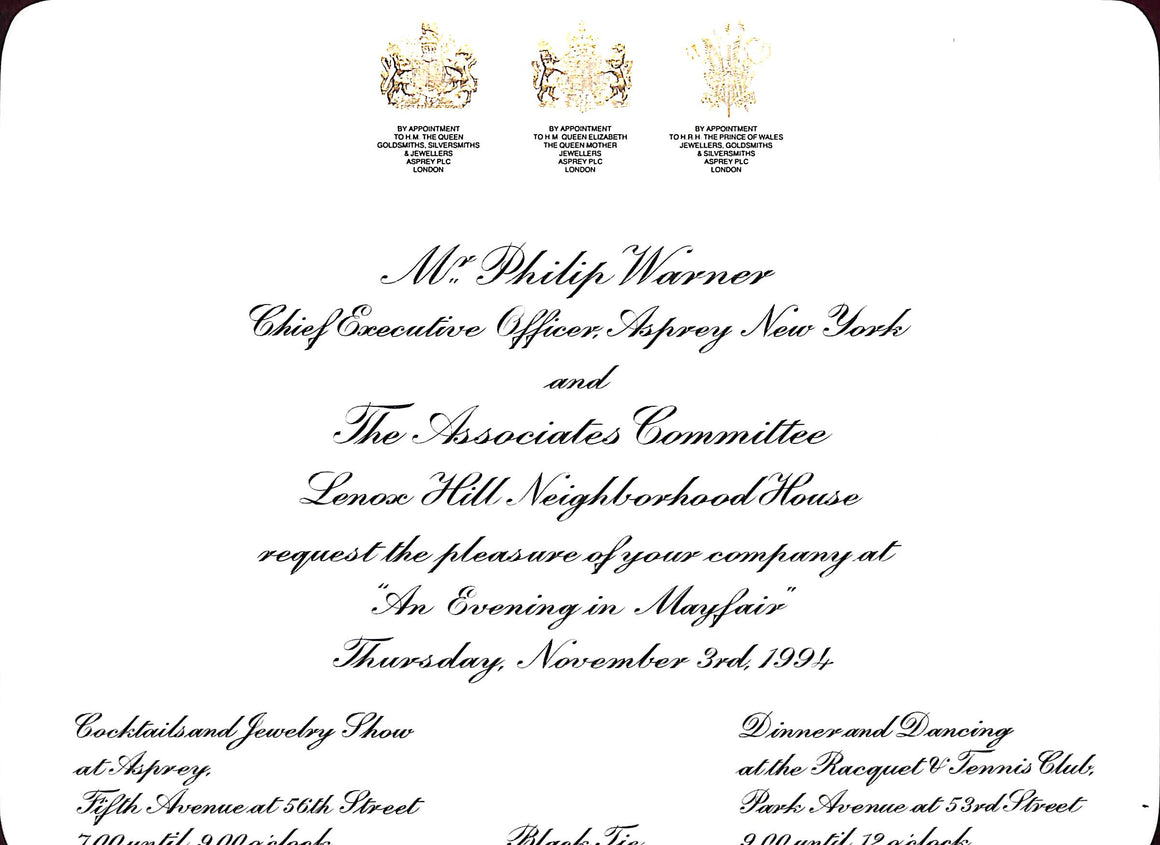 BY APPOINTMENT
TO H.M. THE QUEEN
GOLDSMITHS, SILVERSMITHS
& JEWELLERS
ASPREY PLC
LONDON
BY APPOINTMENT
TO H M QUEEN ELIZABETH
THE QUEEN MOTHER
JEWELLERS
ASPREY PLC
LONDON
BY APPOINTMENT
TO H.R.H. THE PRINCE OF WALES
JEWELLERS, GOLDSMITHS
& SILVERSMITHS
ASPREY PLC
LONDON
Mr. Philip Warner
Chief Executive Officer, Asprey New York
and
The Associates Committee
Lenox Hill Neighborhood House
request the pleasure of your company at
"An Evening in Mayfair"
Thursday, November 3rd, 1994
Cocktails and Jewelry Show
at Asprey,
Fifth Avenue at 56th Street
7.00 until 9.00 o'clock
Black Tie
Dinner and Dancing
at the Racquet & Tennis Club,
Park Avenue at 53rd Street
9.00 until 12 o'clock